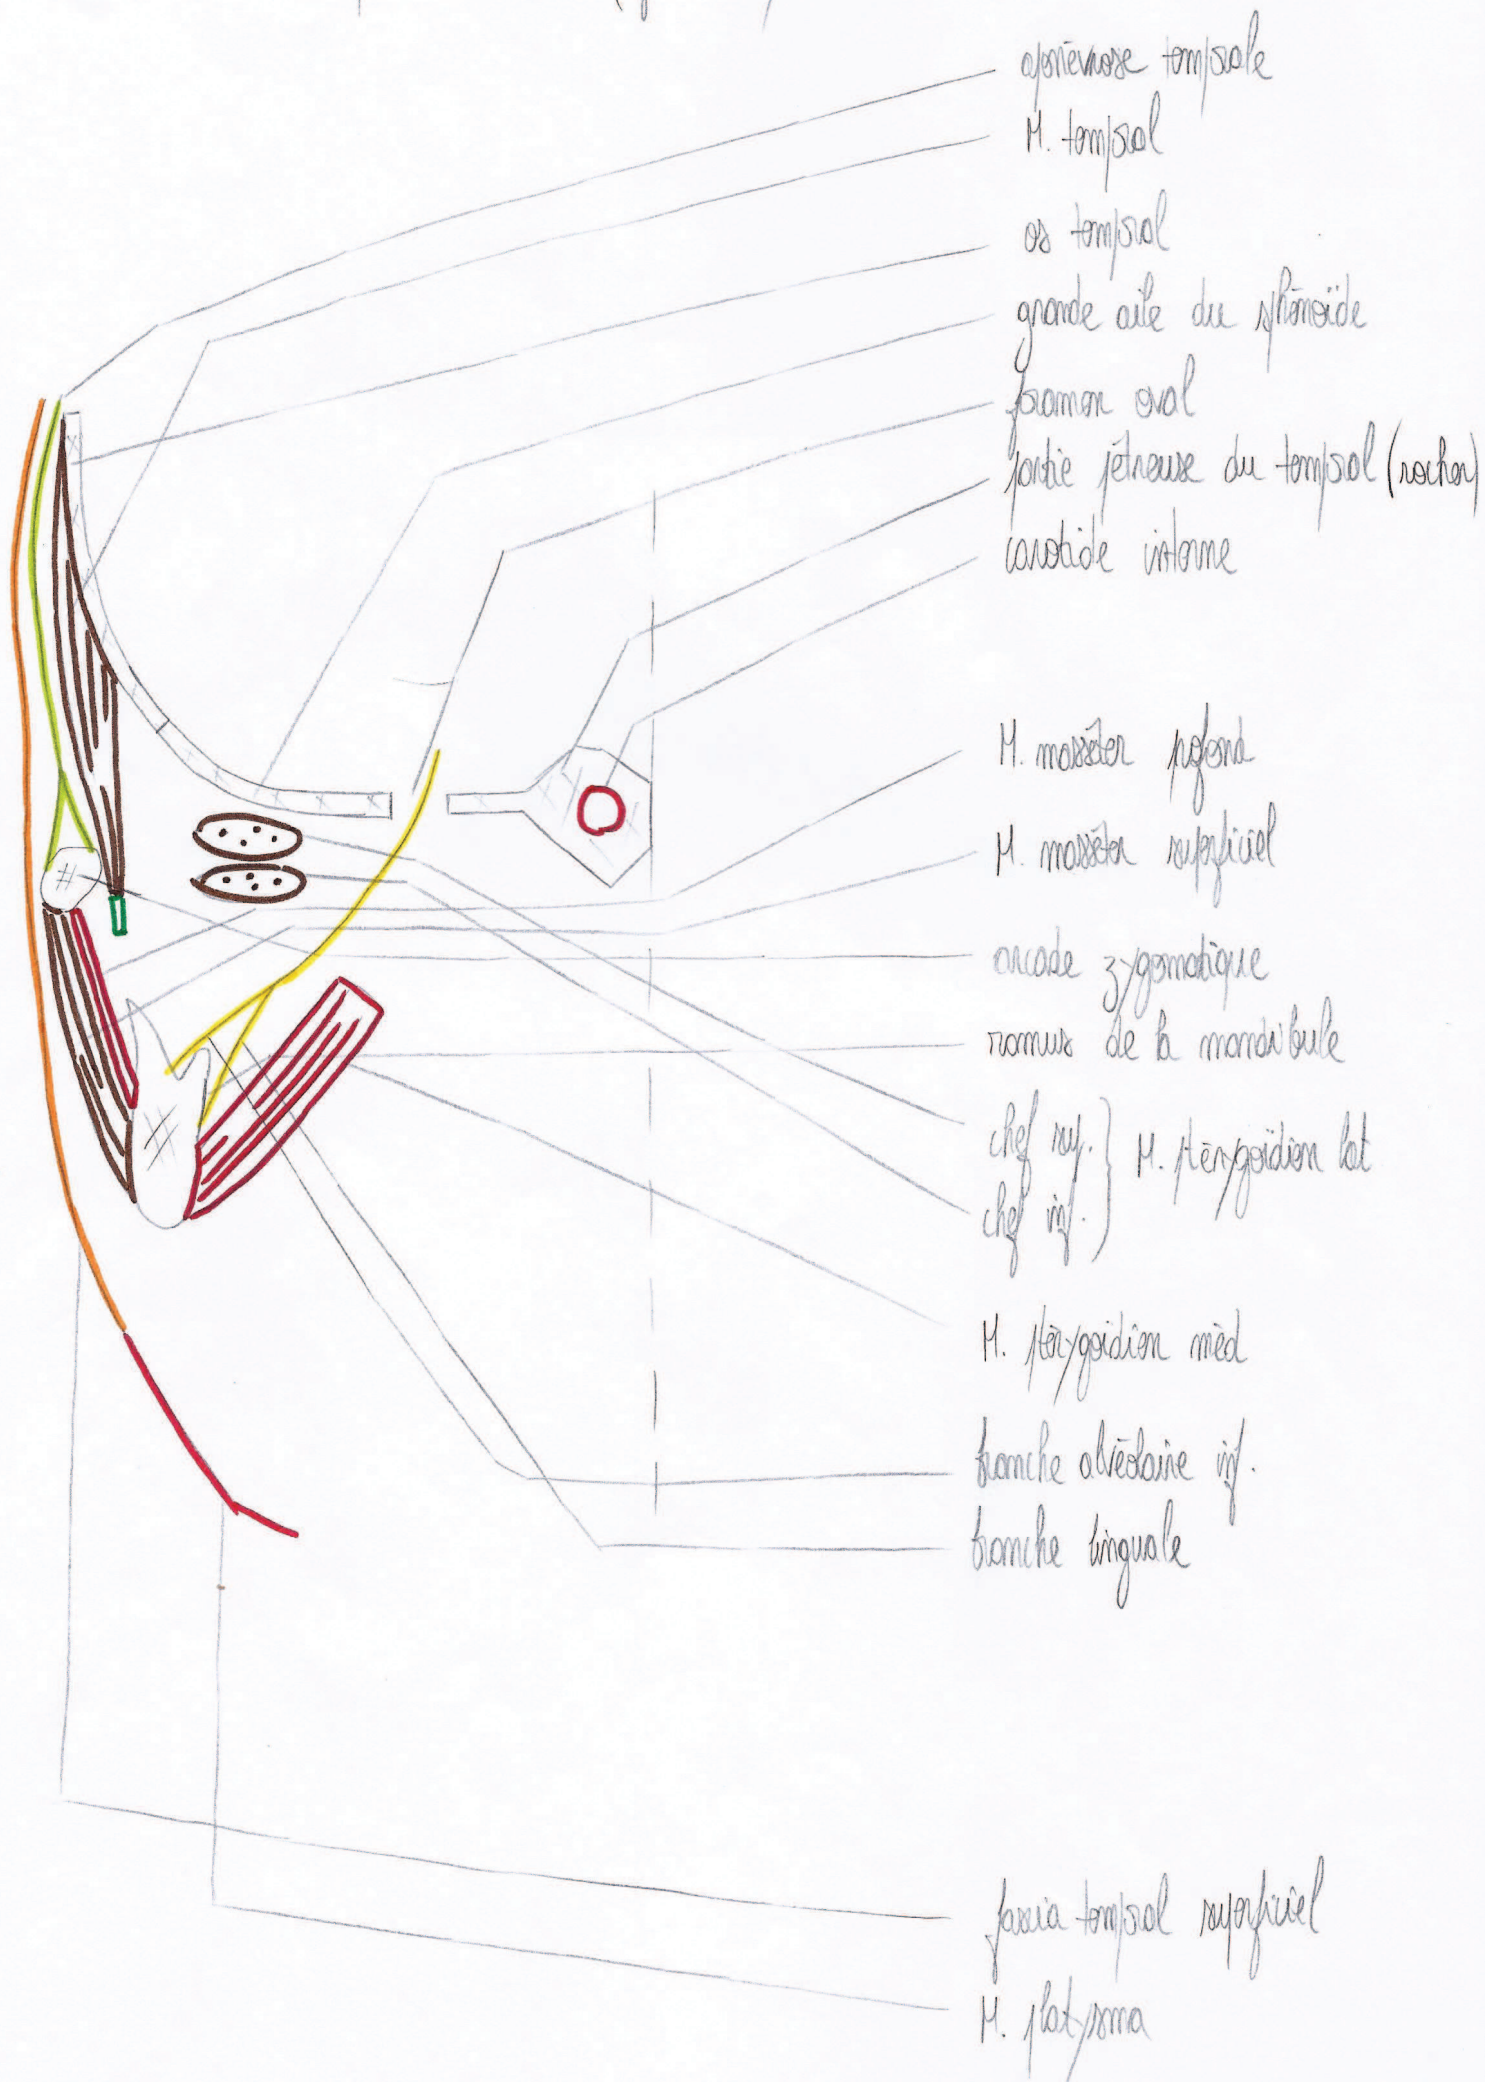 aponévrose temporale
M. temporal
os temporal
grande aile du sphénoïde
foramen oval
partie pétreuse du temporal (rocher)
carotide interne
M. masséter profond
M. masséter superficiel
arcade zygomatique
ramus de la mandibule
chef sup.
chef inf. } M. ptérygoïdien lat
M. ptérygoïdien méd
branche alvéolaire inf.
branche linguale
fascia temporal superficiel
M. platysma